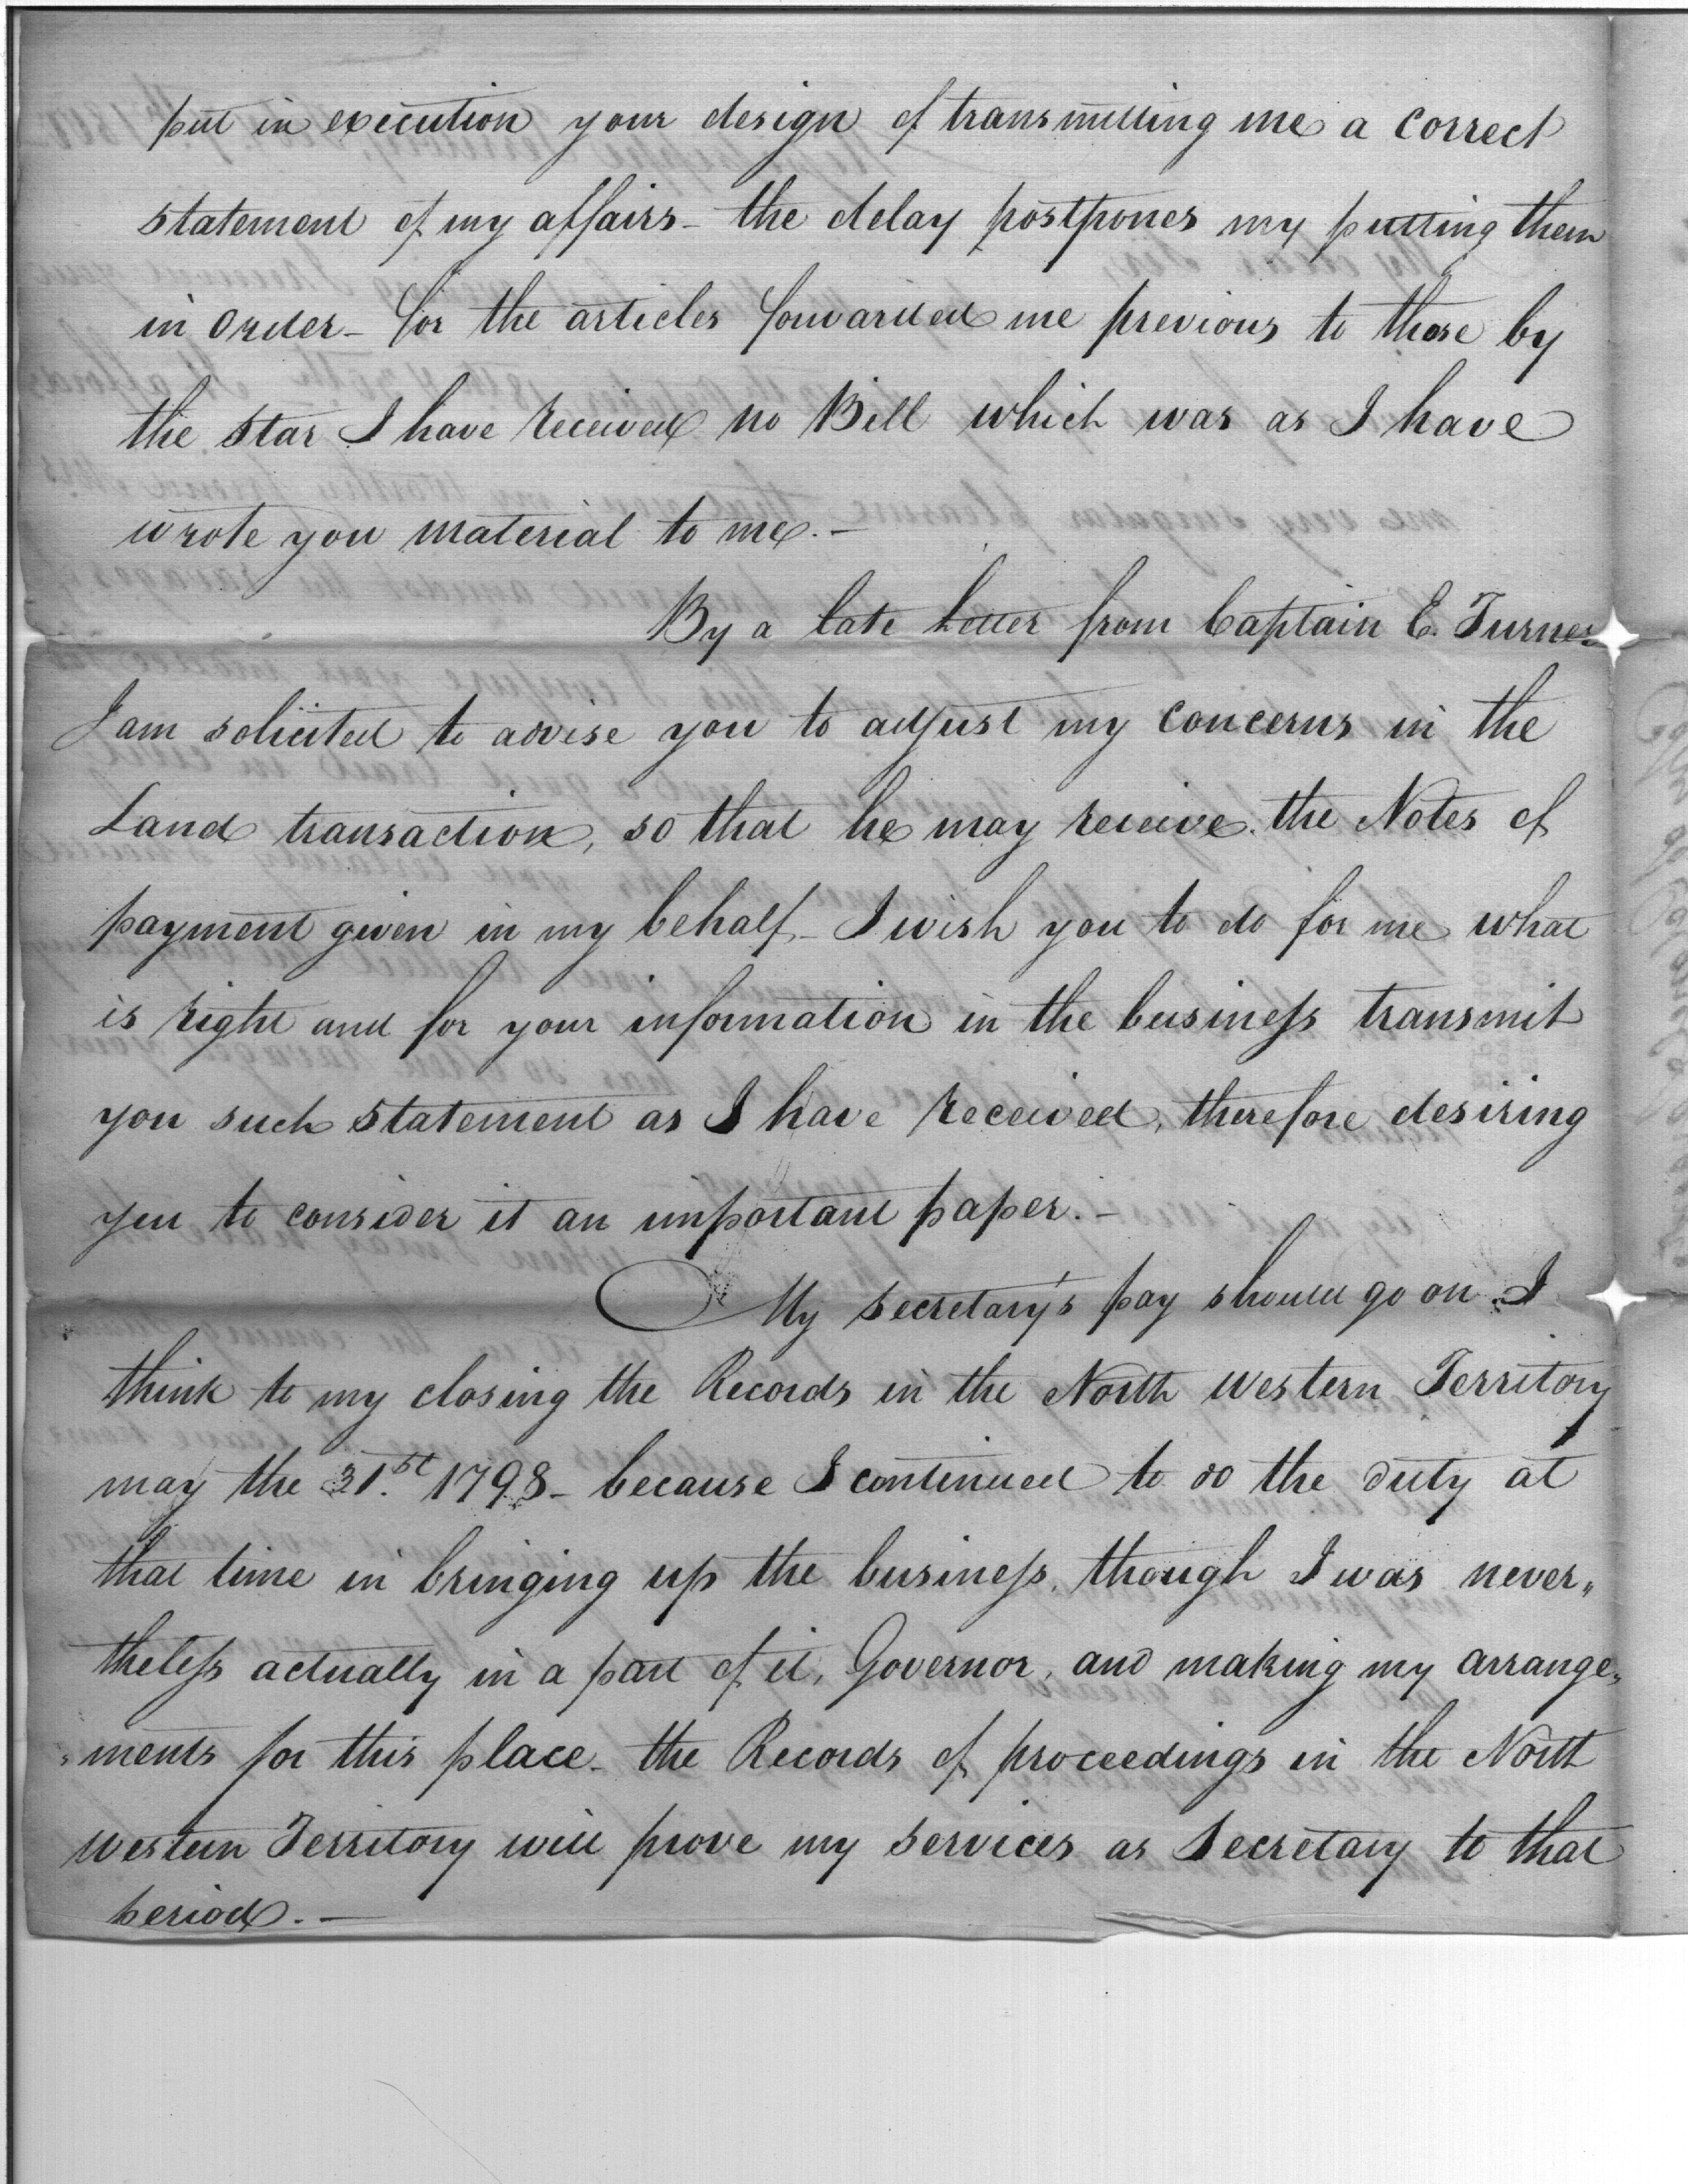 put in execution your design of transmitting me a correct
statement of my affairs - the delay postpones my putting them
in order - for the articles forwarded me previous to those by
the Star I have received no Bill which was as I have
wrote you material to me. -
By a late letter from Captain E. Turner
I am solicited to advise you to adjust my concerns in the
Land transaction, so that he may receive the Notes of
payment given in my behalf - I wish you to do for me what
is right and for your information in the business transmit
you such statement as I have received, therefore desiring
you to consider it an important paper. -
My Secretary's pay should go on I
think to my closing the Records in the North Western Territory
may the 31.st 1798 - because I continued to do the duty at
that time in bringing up the business, though I was never„
theless actually in a part of it, Governor, and making my arrange„
„ments for this place - the Records of proceedings in the North
Western Territory will prove my services as Secretary to that
period. -